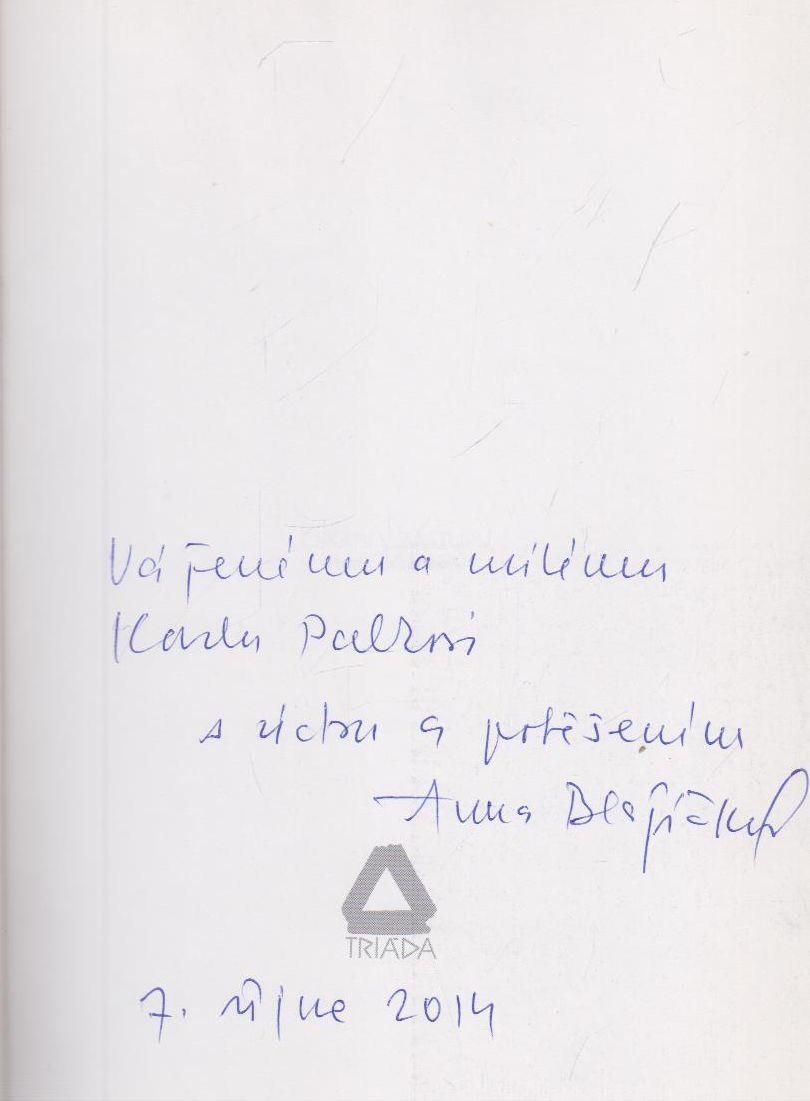 Váženému a milému
Karlu Palkovi
s úctou a potěšením
Anna Blažíčková
TRIÁDA
7. října 2014